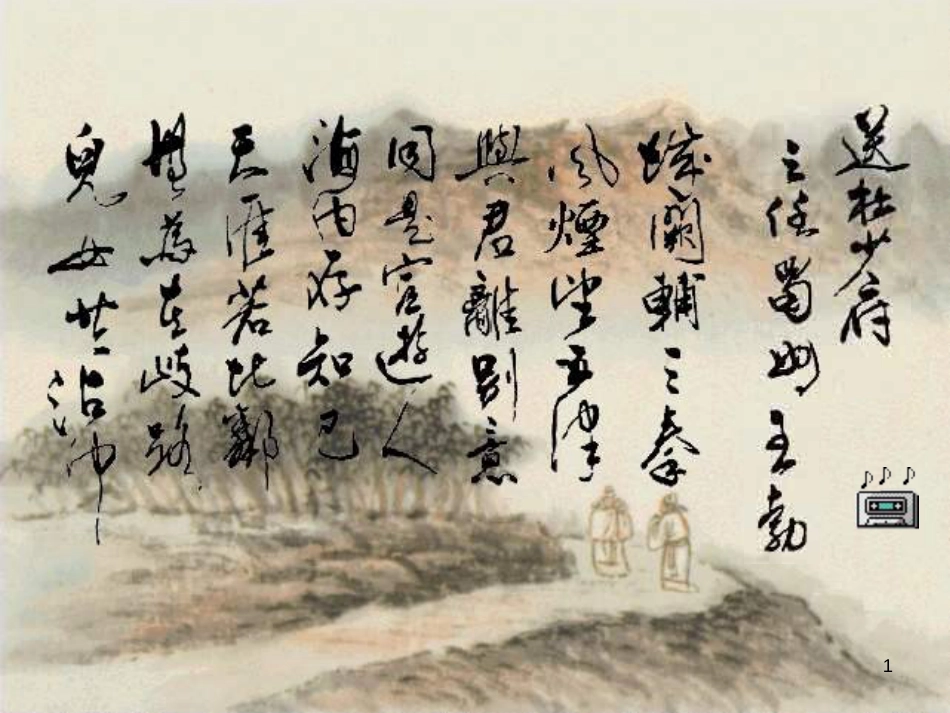 送杜少府
之任蜀州王勃
城闕輔三秦
風煙望五津
與君離別意
同是宦遊人
海內存知己
天涯若比鄰
無為在歧路
兒女共沾巾
1